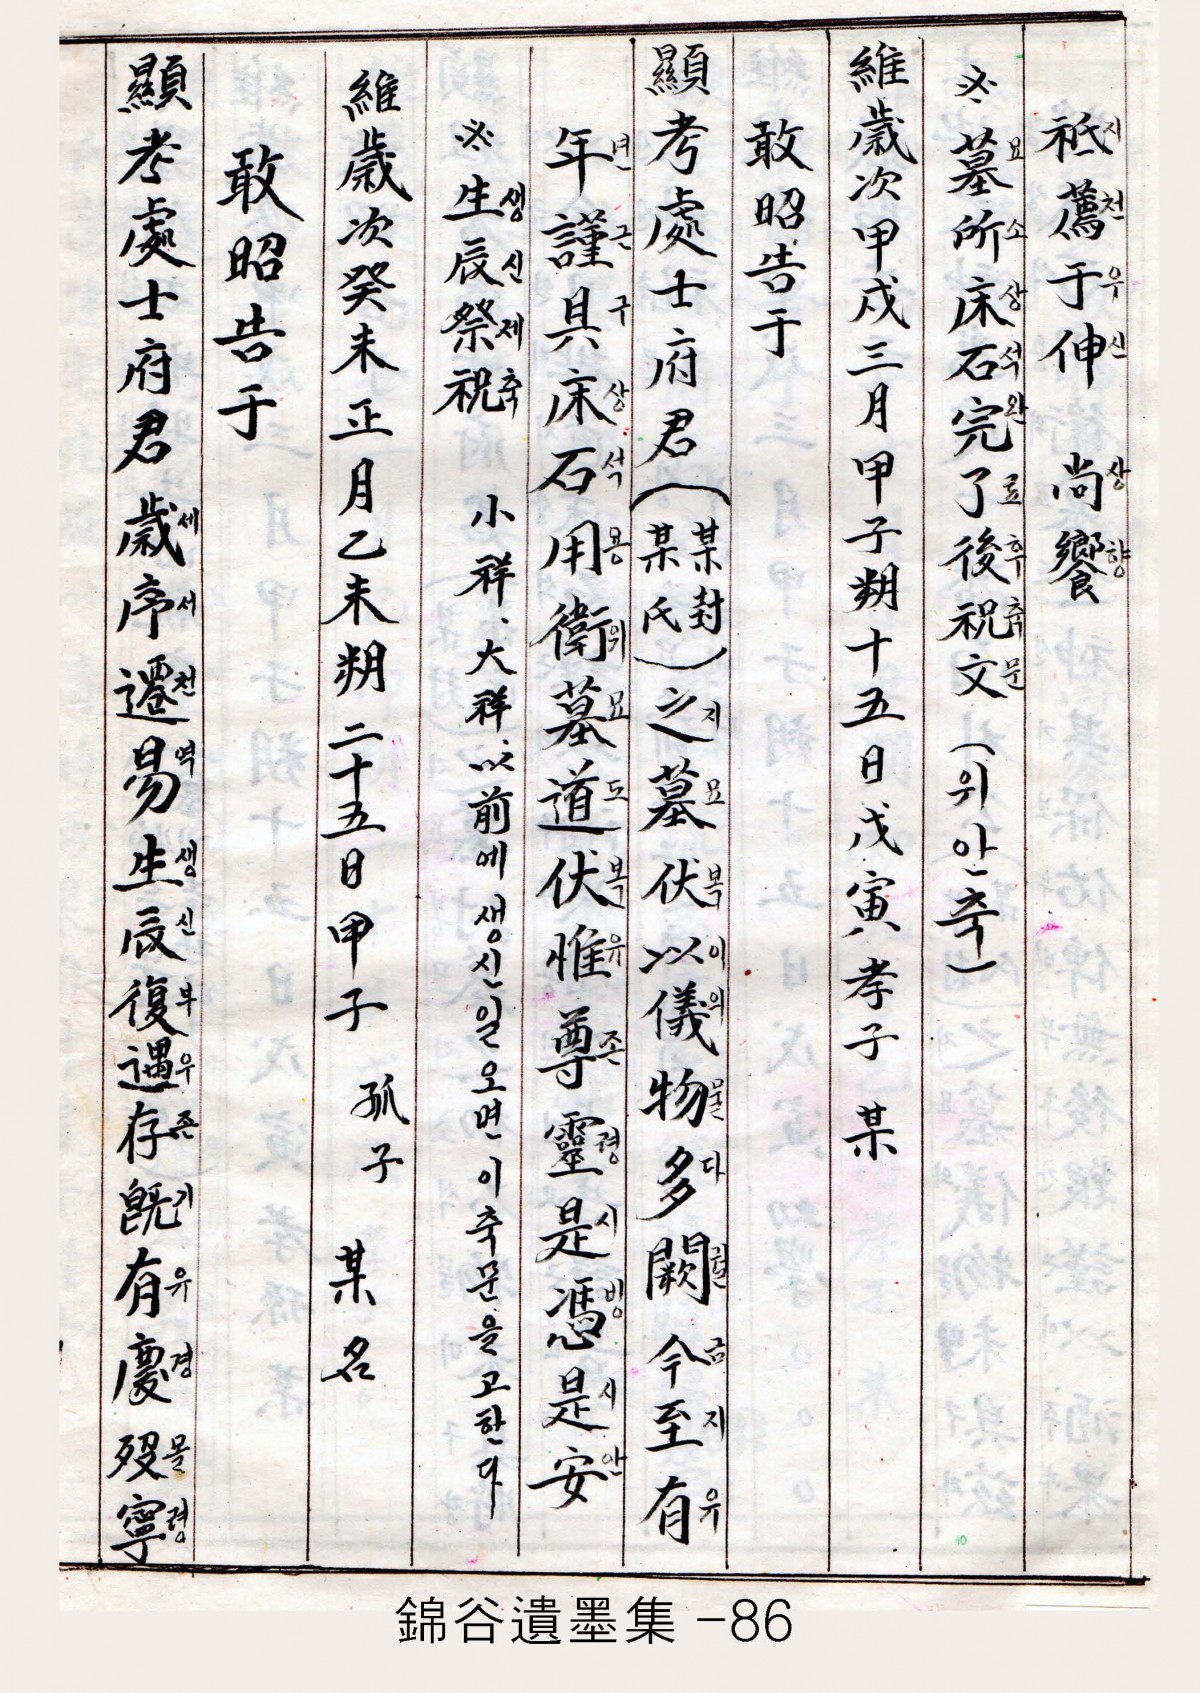 祗지薦천于우伸신 尚상饗향
※墓묘所소床상石석完완了료後후祝축文문 (위안축)
維歲次甲戌三月甲子朔十五日戊寅孝子 某
敢昭告于
顯考處士府君(某封某氏)之지墓묘伏복以이儀의物물多다闕궐今금至지有유
年년謹근具구床상石석用용衛위墓묘道도伏복惟유尊존靈령是시憑빙是시安안
※生생辰신祭제祝축 小祥、大祥、以前에 생신일 오면 이 축문을 고한다
維歲次癸未正月乙未朔二十五日甲子 孤子 某名
敢昭告于
顯考處士府君歲세序서遷천易역生생辰신復부遇우存존旣기有유慶경歿몰寧령
錦谷遺墨集 -86